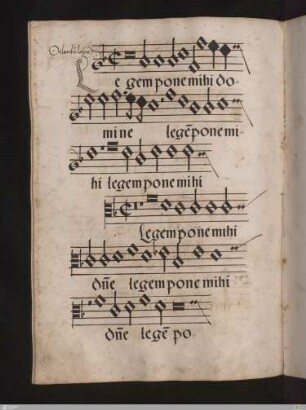 Le gem pone mihi do-
mi ne legē pone mi-
hi legem pone mihi
Legem pone mihi
dñe legem pone mihi
dñe legē po-